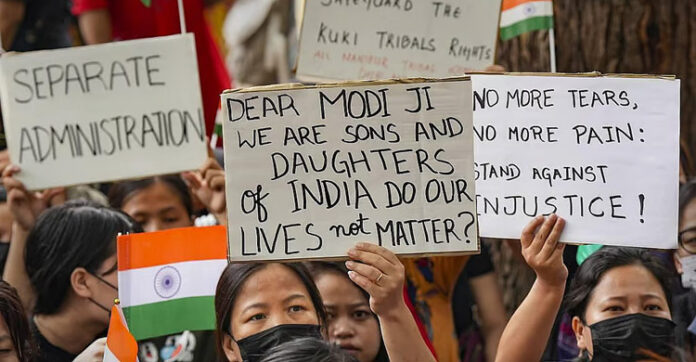 SEPARATE
ADMINISTRATION
SAFEGUARD THE
KUKI TRIBALS RIGHTS
ALL MANIPUR TRIBAL
DEAR MODI JI
WE ARE SONS AND
DAUGHTERS
of INDIA DO OUR
LIVES not MATTER?
NO MORE TEARS,
NO MORE PAIN:
STAND AGAINST
INJUSTICE!